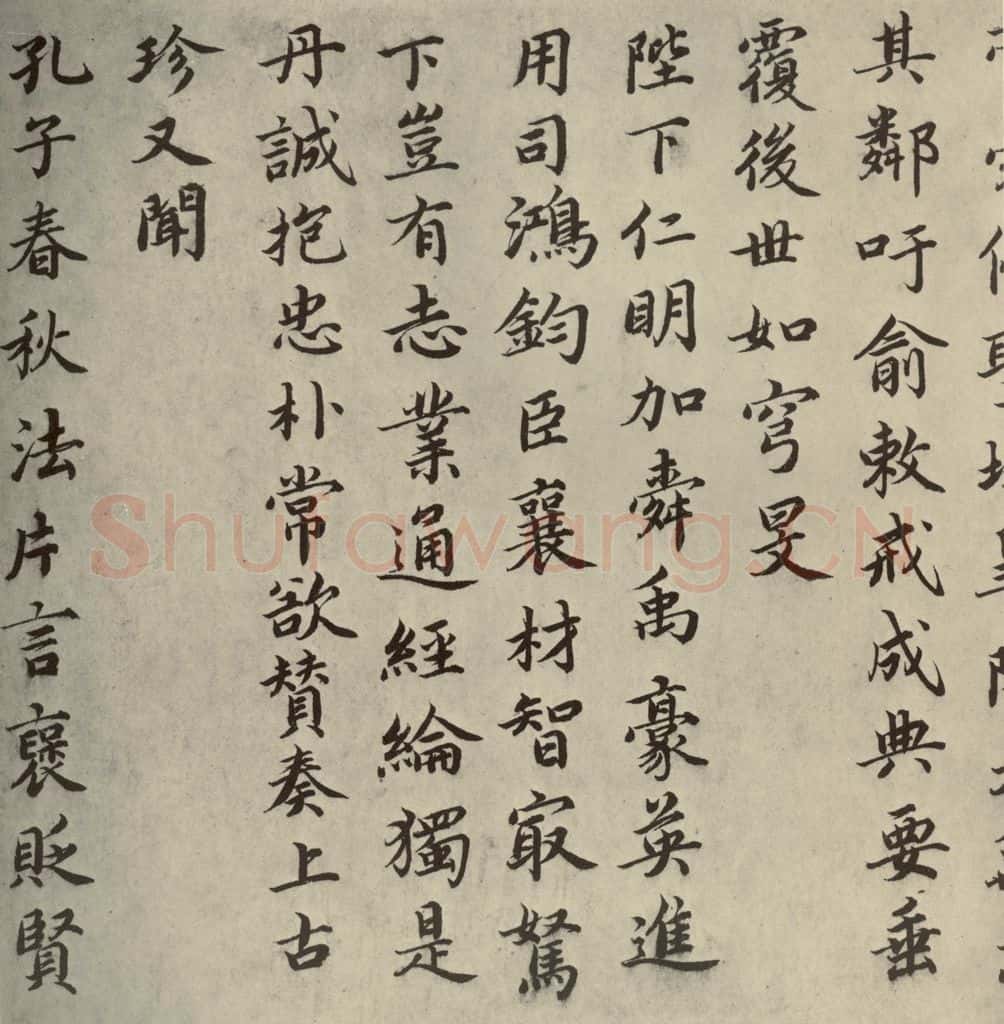 其鄰吁俞敕戒成典要垂
覆後世如穹旻
陛下仁明加舜禹豪英進
用司鴻鈞臣襄材智㝡駑
下豈有志業通經綸獨是
丹誠抱忠朴常欲贊奏上古
珍又聞
孔子春秋法片言褒貶賢
Shufawang.CN